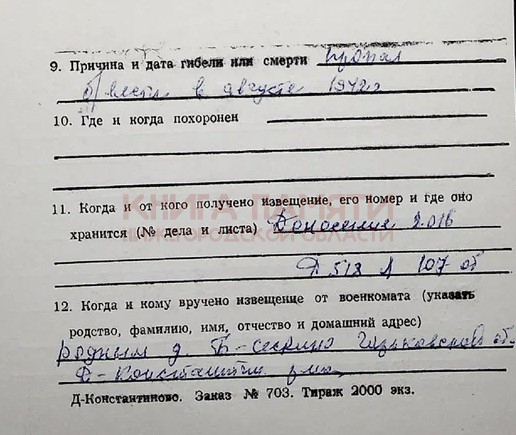 9. Причина и дата гибели или смерти пропал
б/вести в августе 1942г
10. Где и когда похоронен
КНИГА ПАМЯТИ
НИЖЕГОРОДСКОЙ ОБЛАСТИ
11. Когда и от кого получено извещение, его номер и где оно
хранится (№ дела и листа) Донесение 2016
Д 518 л 107 об
12. Когда и кому вручено извещение от военкомата (указать
родство, фамилию, имя, отчество и домашний адрес)
родным д. Горьковской об.
Д-Константин
Д-Константиново. Заказ № 703. Тираж 2000 экз.